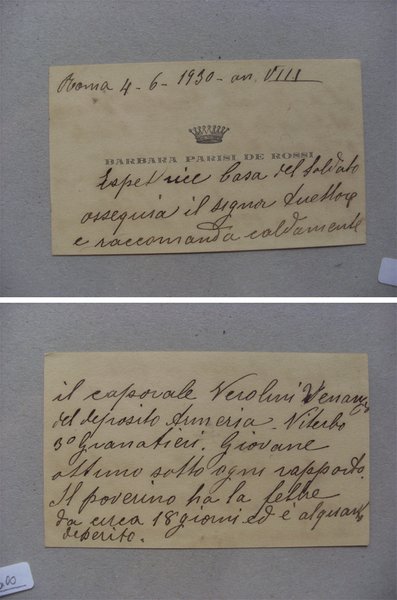 Roma 4-6-1930-an. VIII
BARBARA PARISI DE ROSSI
Ispettrice Casa del Soldato
ossequia il signor Direttore
e raccomanda caldamente
il caporale Verolini Venanzio
del deposito Armeria - Viterbo
3º Granatieri. Giovane
ottimo sotto ogni rapporto.
Il poverino ha la febbre
da circa 18 giorni ed è alquanto
deperito.
,00